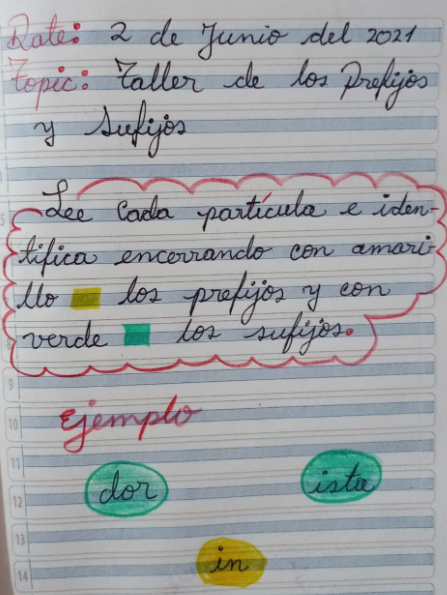 Date: 2 de Junio del 2021
Topic: Taller de los Prefijos
y Sufijos
Lee Cada partícula e iden-
tifica encerrando con amari-
llo los prefijos y con
verde los sufijos.
Ejemplo
dor ista
in